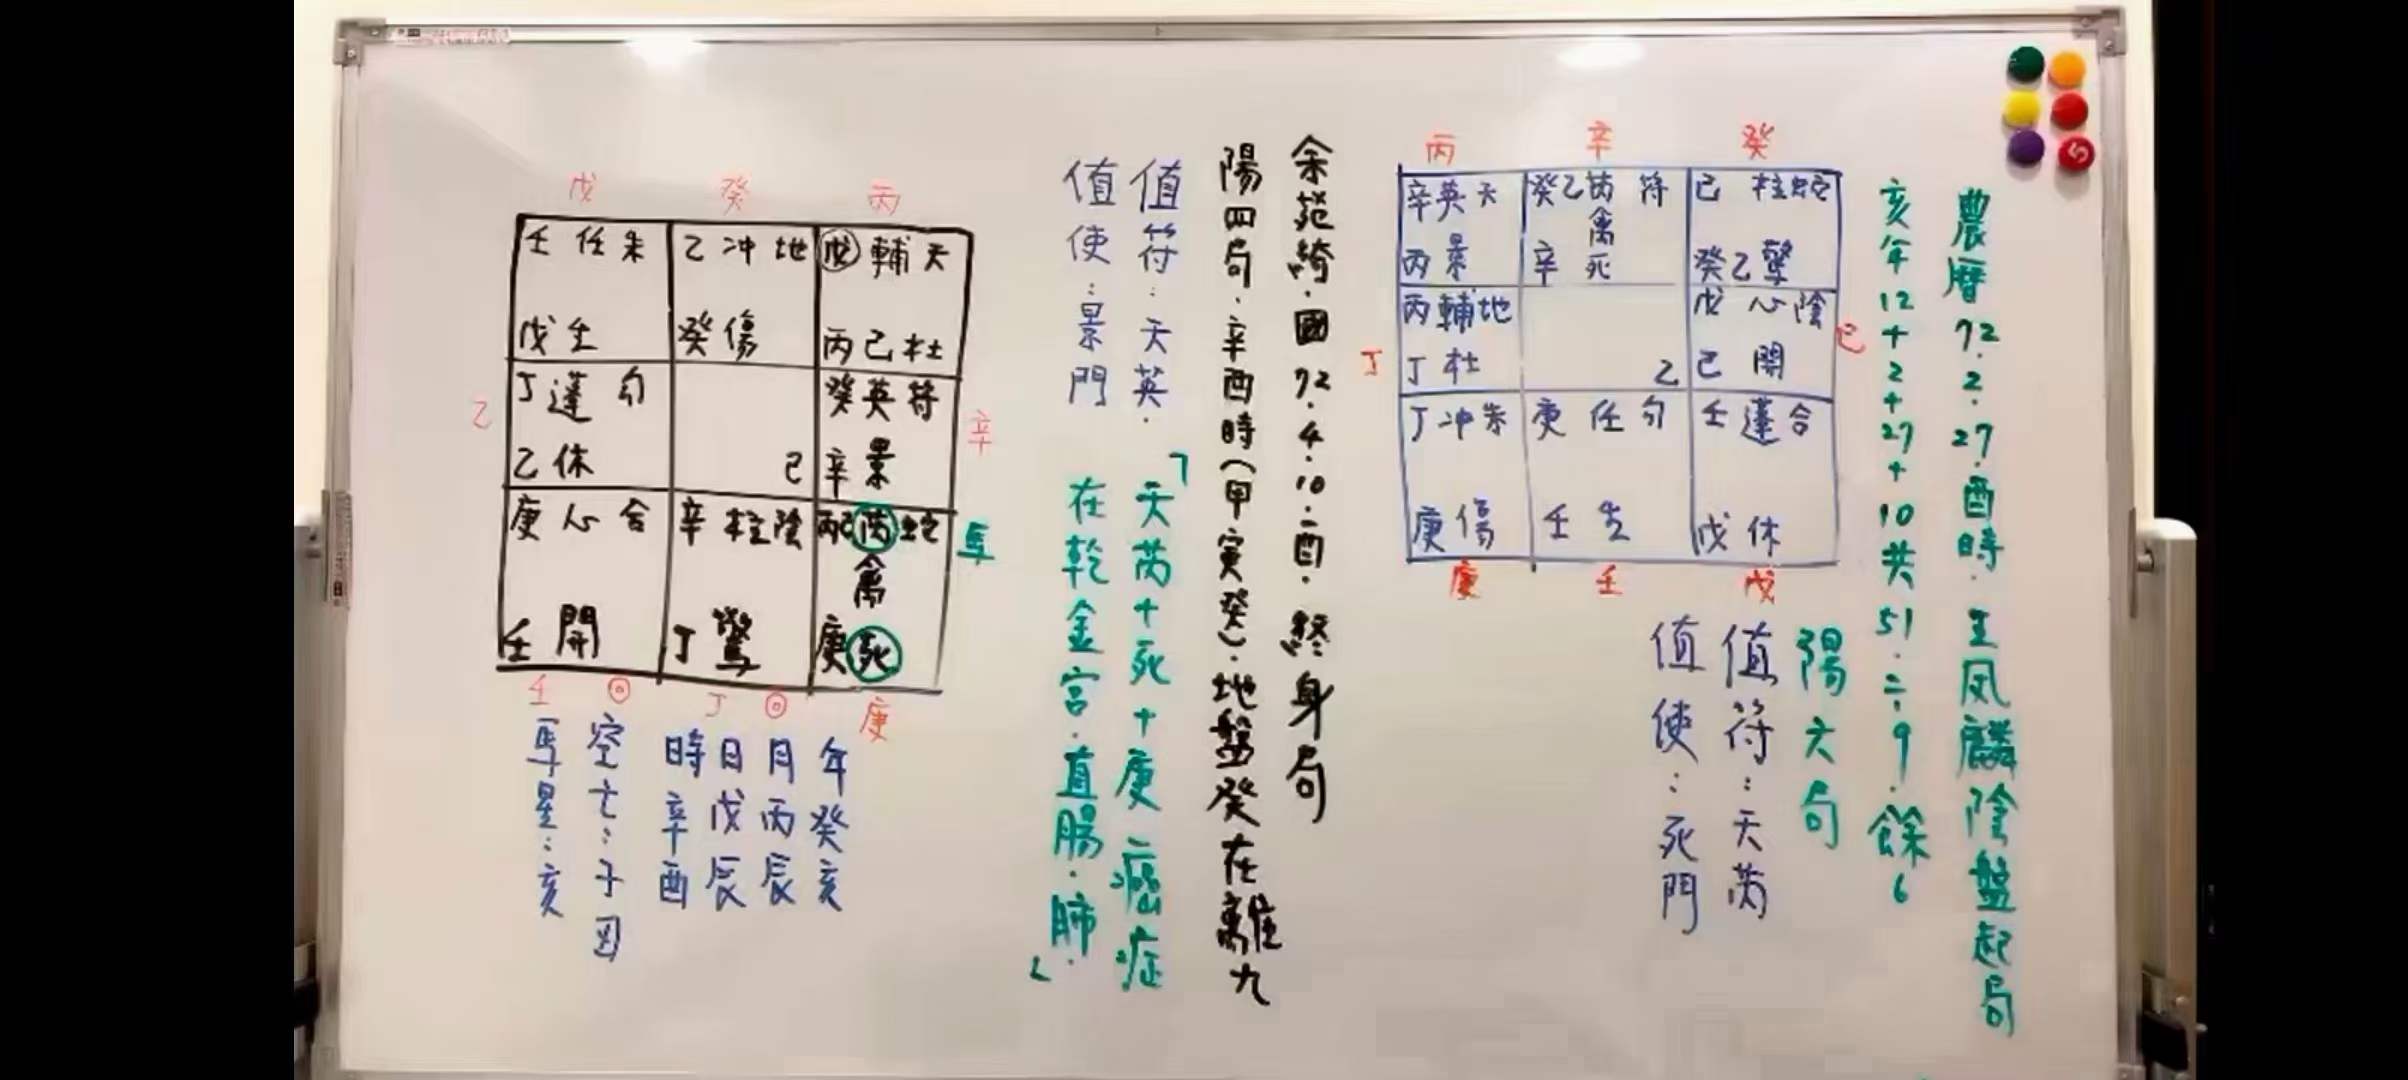 農曆72.2.27.酉時.王凤麟陰盤起局
亥年12+2+27+10共51.÷9.餘6
陽六局
值符:天芮
值使:死門
丙 辛 癸
辛英天 癸乙芮符 己柱蛇
禽
丙景 辛死 癸乙驚
丙輔地 戊心陰
丁 己
丁杜 乙 己開
丁冲朱 庚任勾 壬蓬合
庚傷 壬生 戊休
庚 壬 戊
余苑綺.國72.4.10.酉.終身局
陽四局.辛酉時(甲寅癸).地盤癸在離九
值符:天英.
值使:景門
「天芮+死+庚癌症
在乾金宮.直腸.肺.」
戊 癸 丙
壬任朱 乙冲地 戊輔天
戊生 癸傷 丙己杜
丁蓬勾 癸英符
乙 辛
乙休 己 辛景
庚心合 辛柱陰 丙己芮蛇 馬
禽
壬開 丁驚 庚死
壬 丁 庚
年癸亥
月丙辰
日戊辰
時辛酉
空亡:子丑
馬星:亥